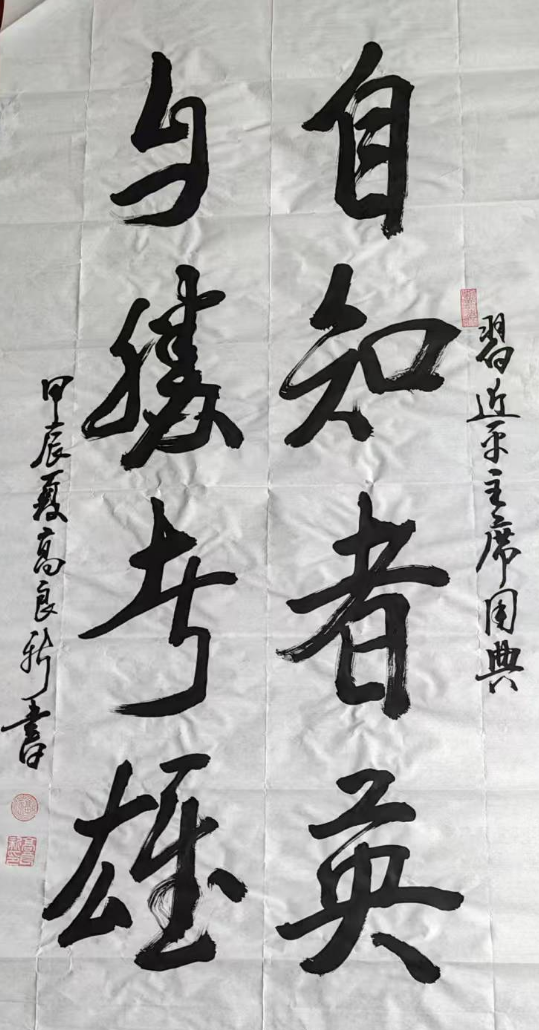 習近平主席用典
自知者英
自勝者雄
甲辰夏高良新書